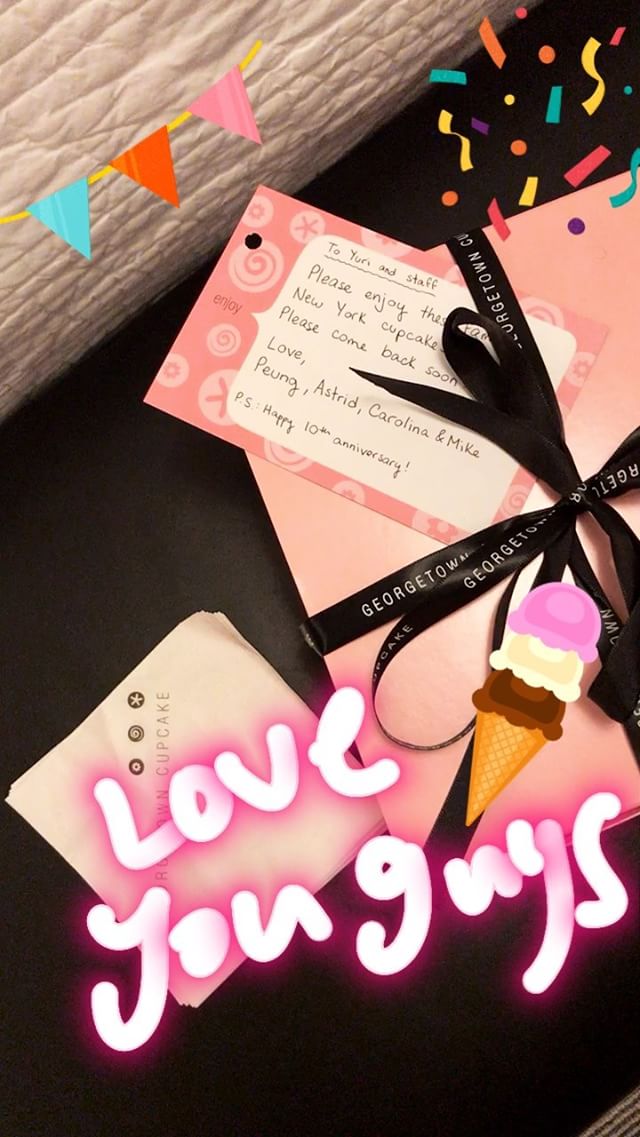 To Yuri and staff
Please enjoy these
New York cupcake
Please come back soon
Love,
Peung, Astrid, Carolina & Mike
P.S.: Happy 10th anniversary!
enjoy
GEORGETOWN CU
GEORGETOWN
GEORGETOWN
GEORGETO
CUPCAKE
GEORGETOWN CUPCAKE
Love
You guys